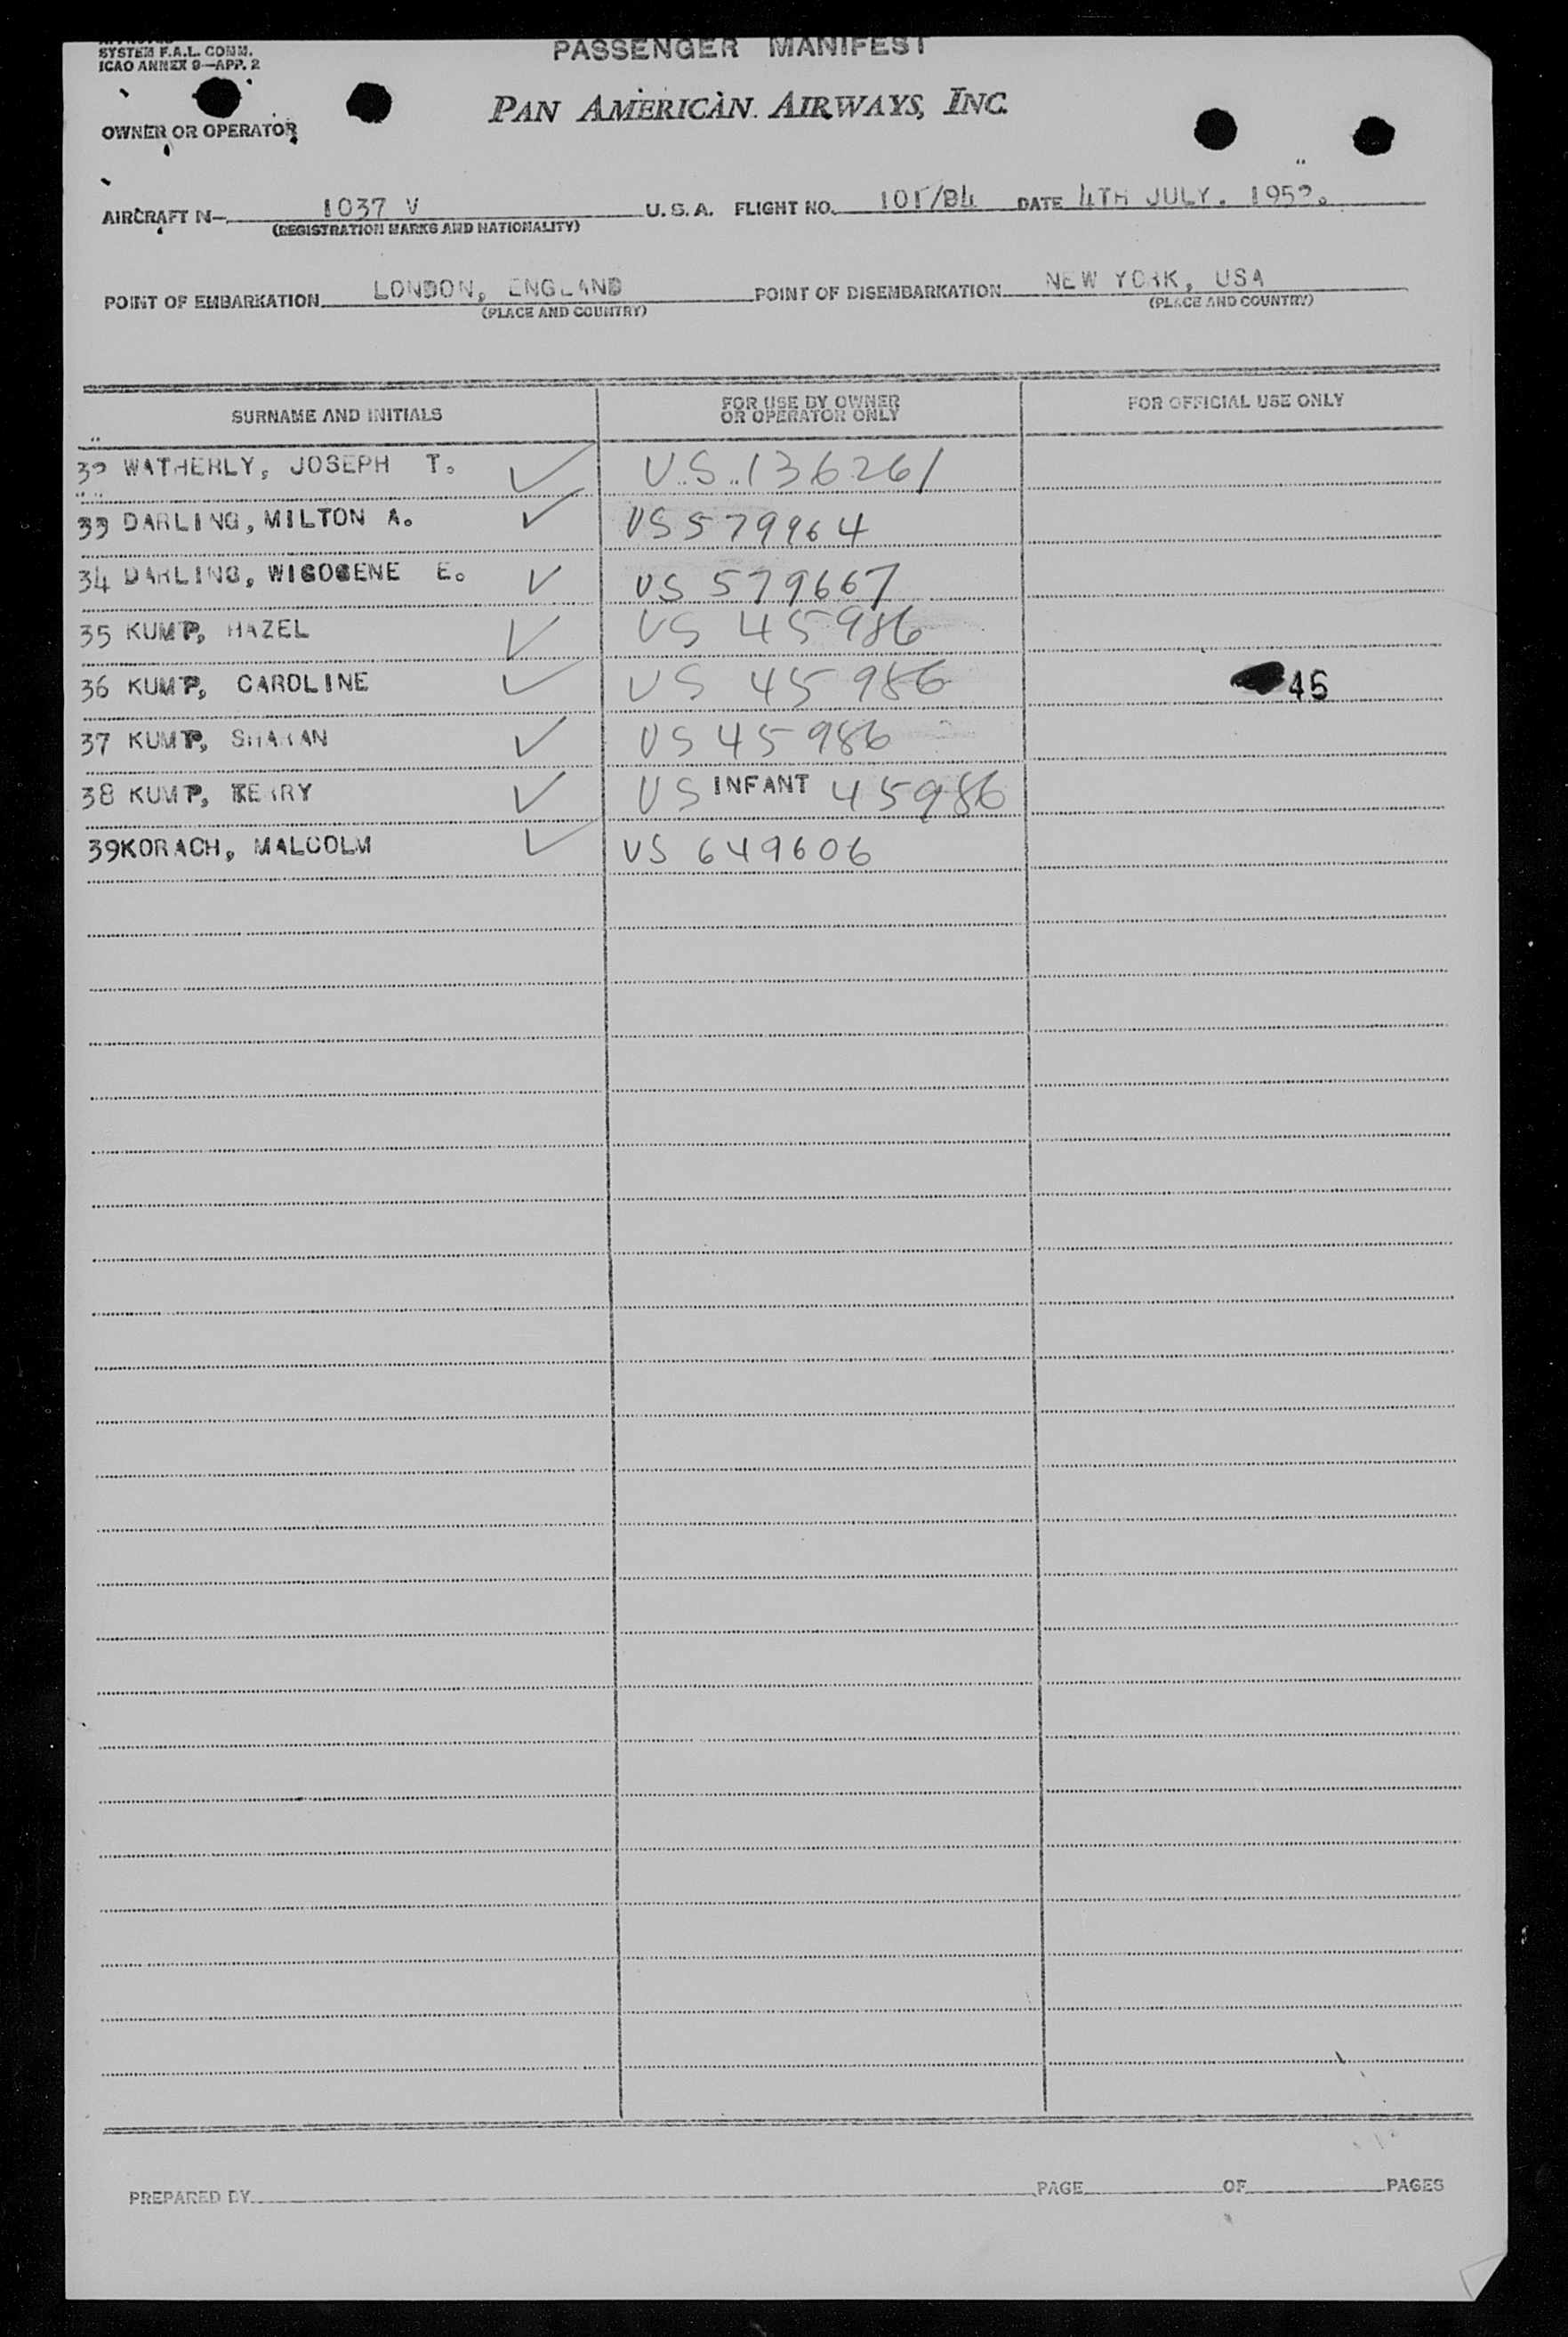 SYSTEM F.A.L. COMM.
ICAO ANNEX 9—APP. 2
PASSENGER MANIFEST
PAN AMERICAN AIRWAYS, INC.
OWNER OR OPERATOR
AIRCRAFT N— 1037 V U.S.A. FLIGHT NO. 101/B4 DATE 4TH JULY. 195
(REGISTRATION MARKS AND NATIONALITY)
POINT OF EMBARKATION LONDON, ENGLAND POINT OF DISEMBARKATION NEW YORK, USA
(PLACE AND COUNTRY) (PLACE AND COUNTRY)
SURNAME AND INITIALS FOR USE BY OWNER OR OPERATOR ONLY FOR OFFICIAL USE ONLY
32 WATHERLY, JOSEPH T. ✓ U.S. 136261
33 DARLING, MILTON A. ✓ US 579964
34 DARLING, E. ✓ US 579667
35 KUMP, HAZEL ✓ US 45986
36 KUMP, CAROLINE ✓ US 45986 46
37 KUMP, SHARAN ✓ US 45986
38 KUMP, ✓ US INFANT 45986
39 KORACH, MALCOLM ✓ US 649606
PREPARED BY PAGE OF PAGES